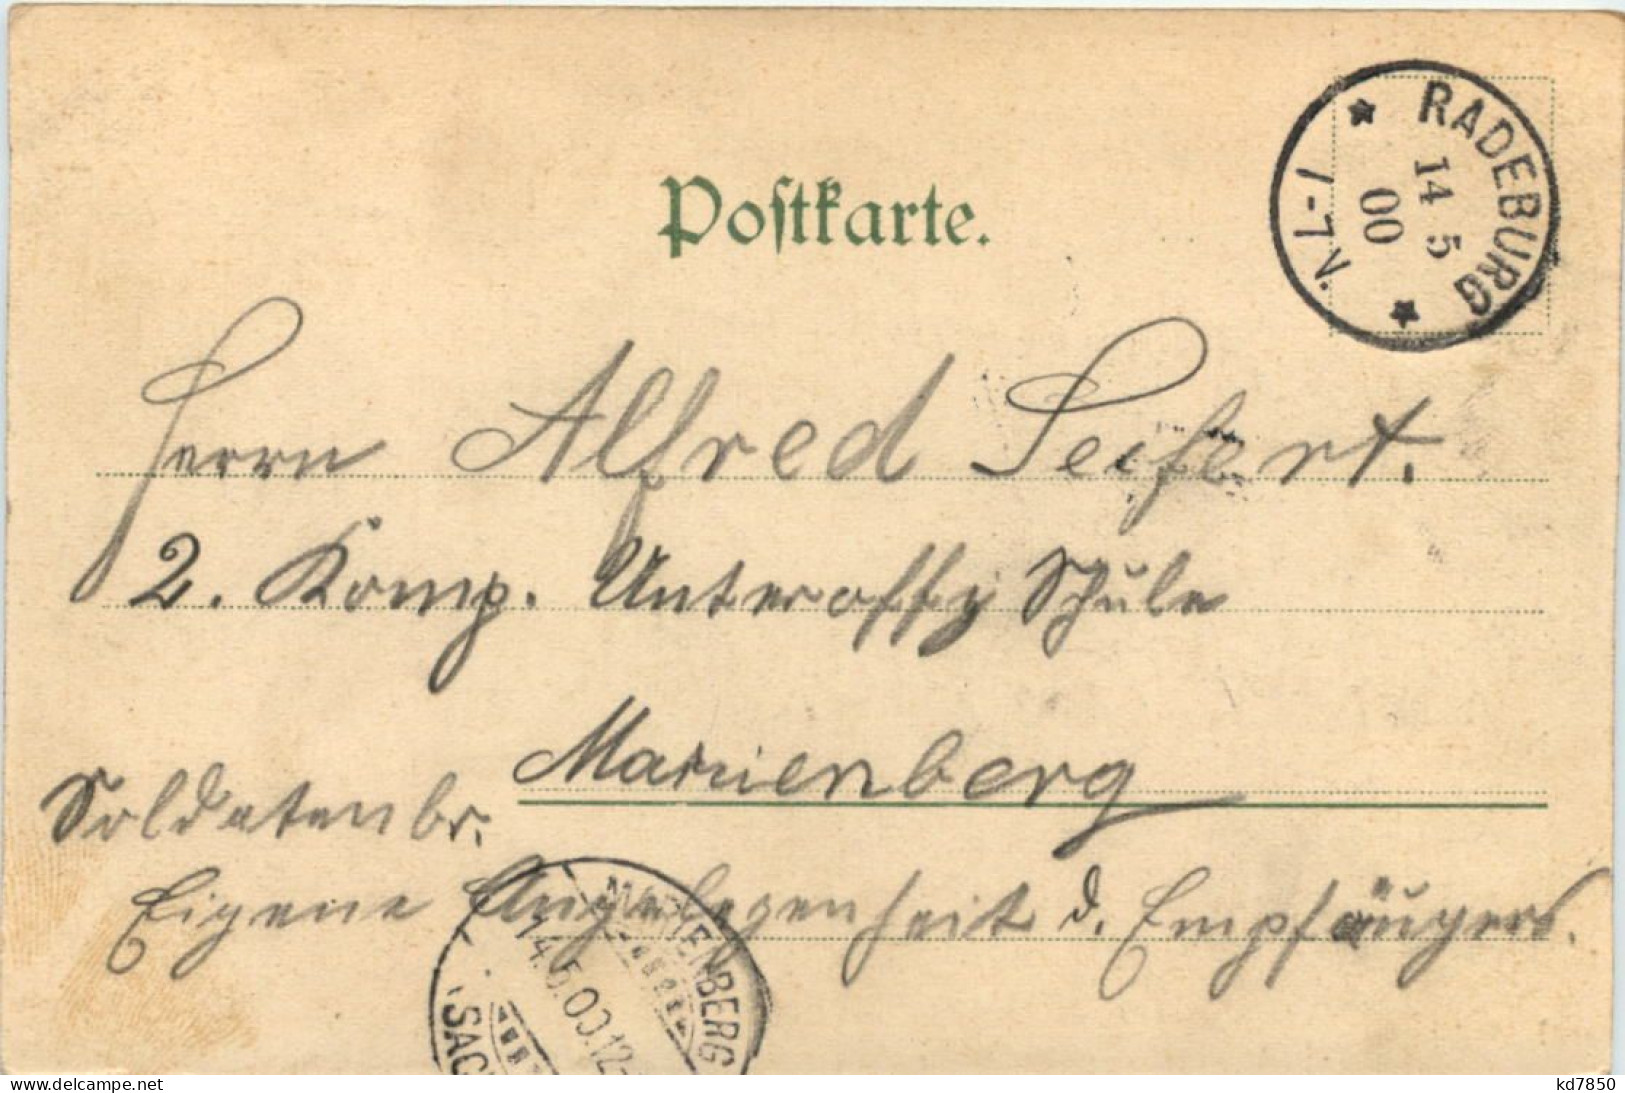 Postkarte.
RADEBURG
14 5
00
1-7 N.
Herrn Alfred Seifert.
2. Komp. Unteroffz Schule
Marienberg
Soldatenbr.
Eigene Angelegenheit d. Empfängers.
MARIENBERG
14.5.00.12-
(SACH
www.delcampe.net
kd7850